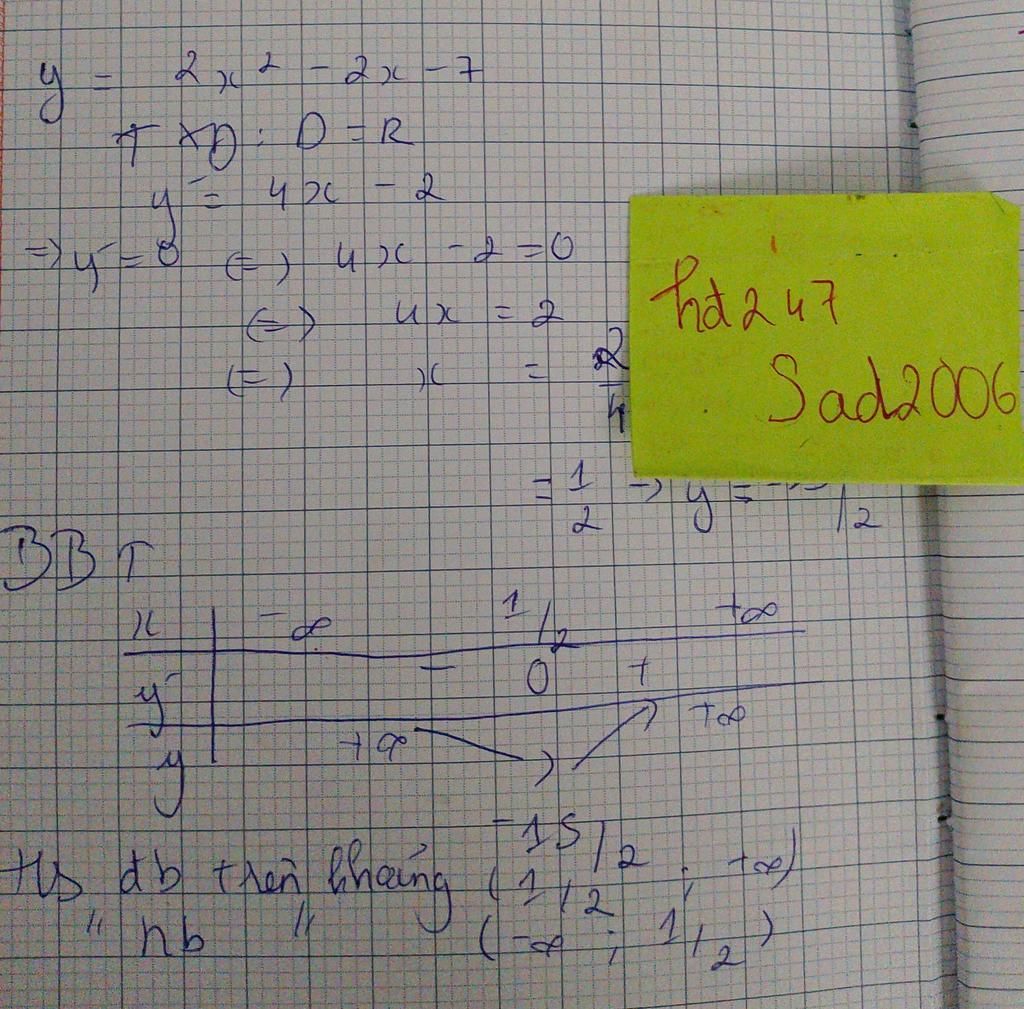 y = 2x² - 2x - 7
TXD : D = R
y' = 4x - 2
=> y' = 0 <=> 4x - 2 = 0
<=> 4x = 2
<=> x = 2/4
= 1/2 -> y = -15/2
hd247
Sad2006
BBT
x -∞ 1/2 +∞
y' - 0 +
y +∞ +∞
-15/2
Hs đb trên khoảng (1/2 ; +∞)
" nb " (-∞ ; 1/2)